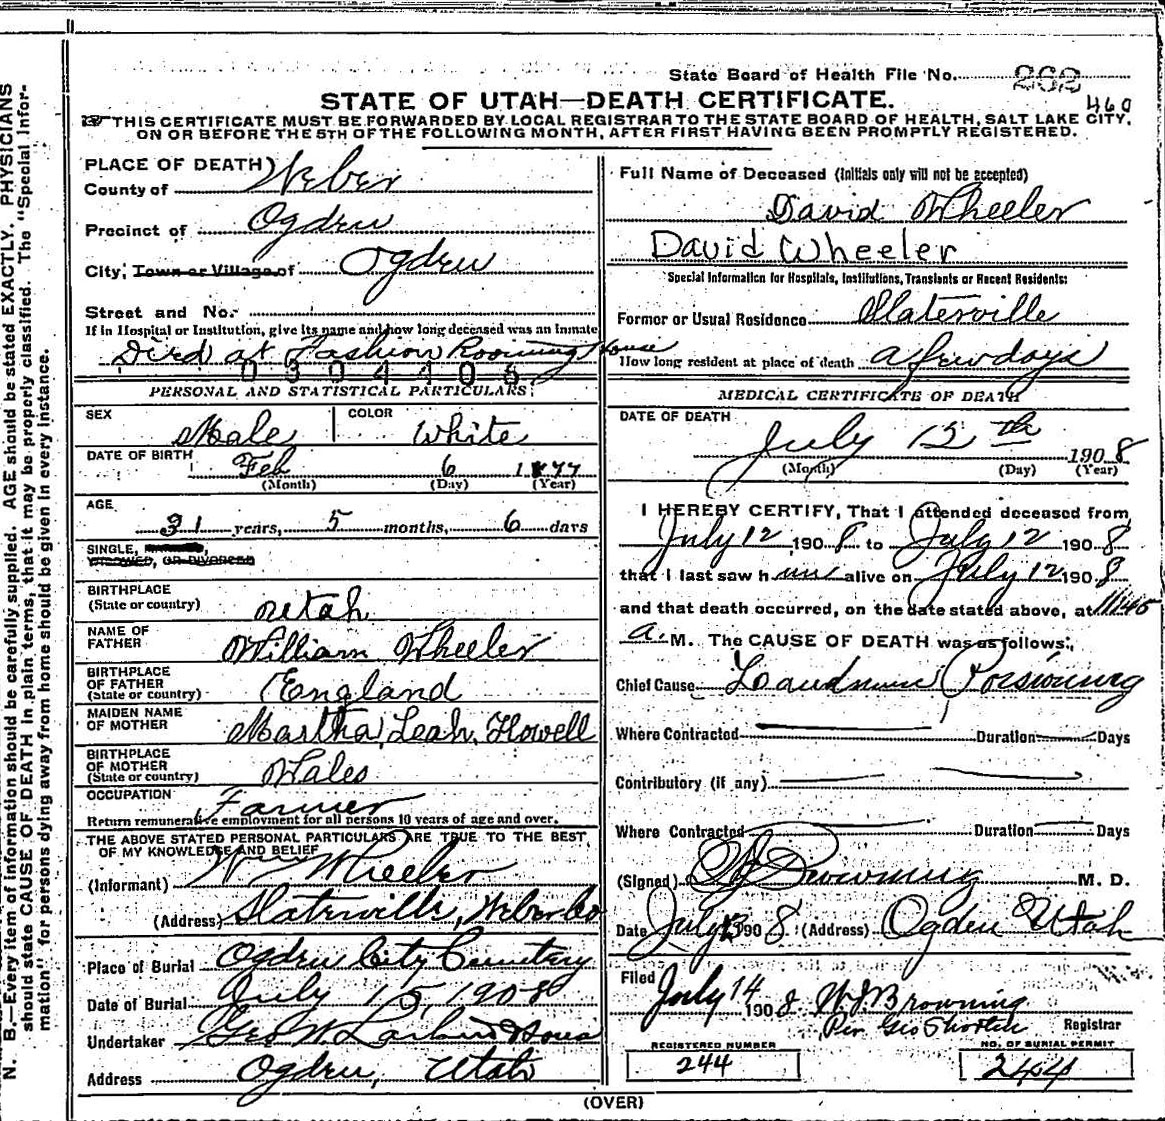 State Board of Health File No. 262
STATE OF UTAH—DEATH CERTIFICATE.
460
THIS CERTIFICATE MUST BE FORWARDED BY LOCAL REGISTRAR TO THE STATE BOARD OF HEALTH, SALT LAKE CITY,
ON OR BEFORE THE 5TH OF THE FOLLOWING MONTH, AFTER FIRST HAVING BEEN PROMPTLY REGISTERED.
PLACE OF DEATH
County of Weber
Precinct of Ogden
City, Town or Village of Ogden
Street and No.
If in Hospital or Institution, give its name and how long deceased was an Inmate
Died at Fashion Rooming House
0304406
PERSONAL AND STATISTICAL PARTICULARS
SEX Male COLOR White
DATE OF BIRTH Feb 6 1877
(Month) (Day) (Year)
AGE
31 years, 5 months, 6 days
SINGLE,
WIDOWED, OR DIVORCED
BIRTHPLACE
(State or country) Utah
NAME OF
FATHER William Wheeler
BIRTHPLACE
OF FATHER
(State or country) England
MAIDEN NAME
OF MOTHER Martha Leah Howell
BIRTHPLACE
OF MOTHER
(State or country) Wales
OCCUPATION Farmer
Return remunerative employment for all persons 10 years of age and over.
THE ABOVE STATED PERSONAL PARTICULARS ARE TRUE TO THE BEST
OF MY KNOWLEDGE AND BELIEF
(Informant) Wm Wheeler
(Address) Slaterville, Weber Co
Place of Burial Ogden City Cemetery
Date of Burial July 15, 1908
Undertaker Geo W. Larkin & Sons
Address Ogden, Utah
Full Name of Deceased (Initials only will not be accepted)
David Wheeler
David Wheeler
Special Information for Hospitals, Institutions, Transients or Recent Residents:
Former or Usual Residence Slaterville
How long resident at place of death a few days
MEDICAL CERTIFICATE OF DEATH
DATE OF DEATH
July 12th 1908
(Month) (Day) (Year)
I HEREBY CERTIFY, That I attended deceased from
July 12, 1908 to July 12 1908
that I last saw him alive on July 12 1908
and that death occurred, on the date stated above, at 11:45
a. M. The CAUSE OF DEATH was as follows:
Chief Cause Laudnum Poisoning
Where Contracted Duration Days
Contributory (if any)
Where Contracted Duration Days
(Signed) Browning M. D.
Date July 13 1908. (Address) Ogden Utah
Filed
July 14 1908 W J Browning
Per Geo Shorten Registrar
REGISTERED NUMBER
244
NO. OF BURIAL PERMIT
244
(OVER)
N. B.—Every item of information should be carefully supplied. AGE should be stated EXACTLY. PHYSICIANS
should state CAUSE OF DEATH in plain terms, that it may be properly classified. The "Special Infor-
mation" for persons dying away from home should be given in every instance.